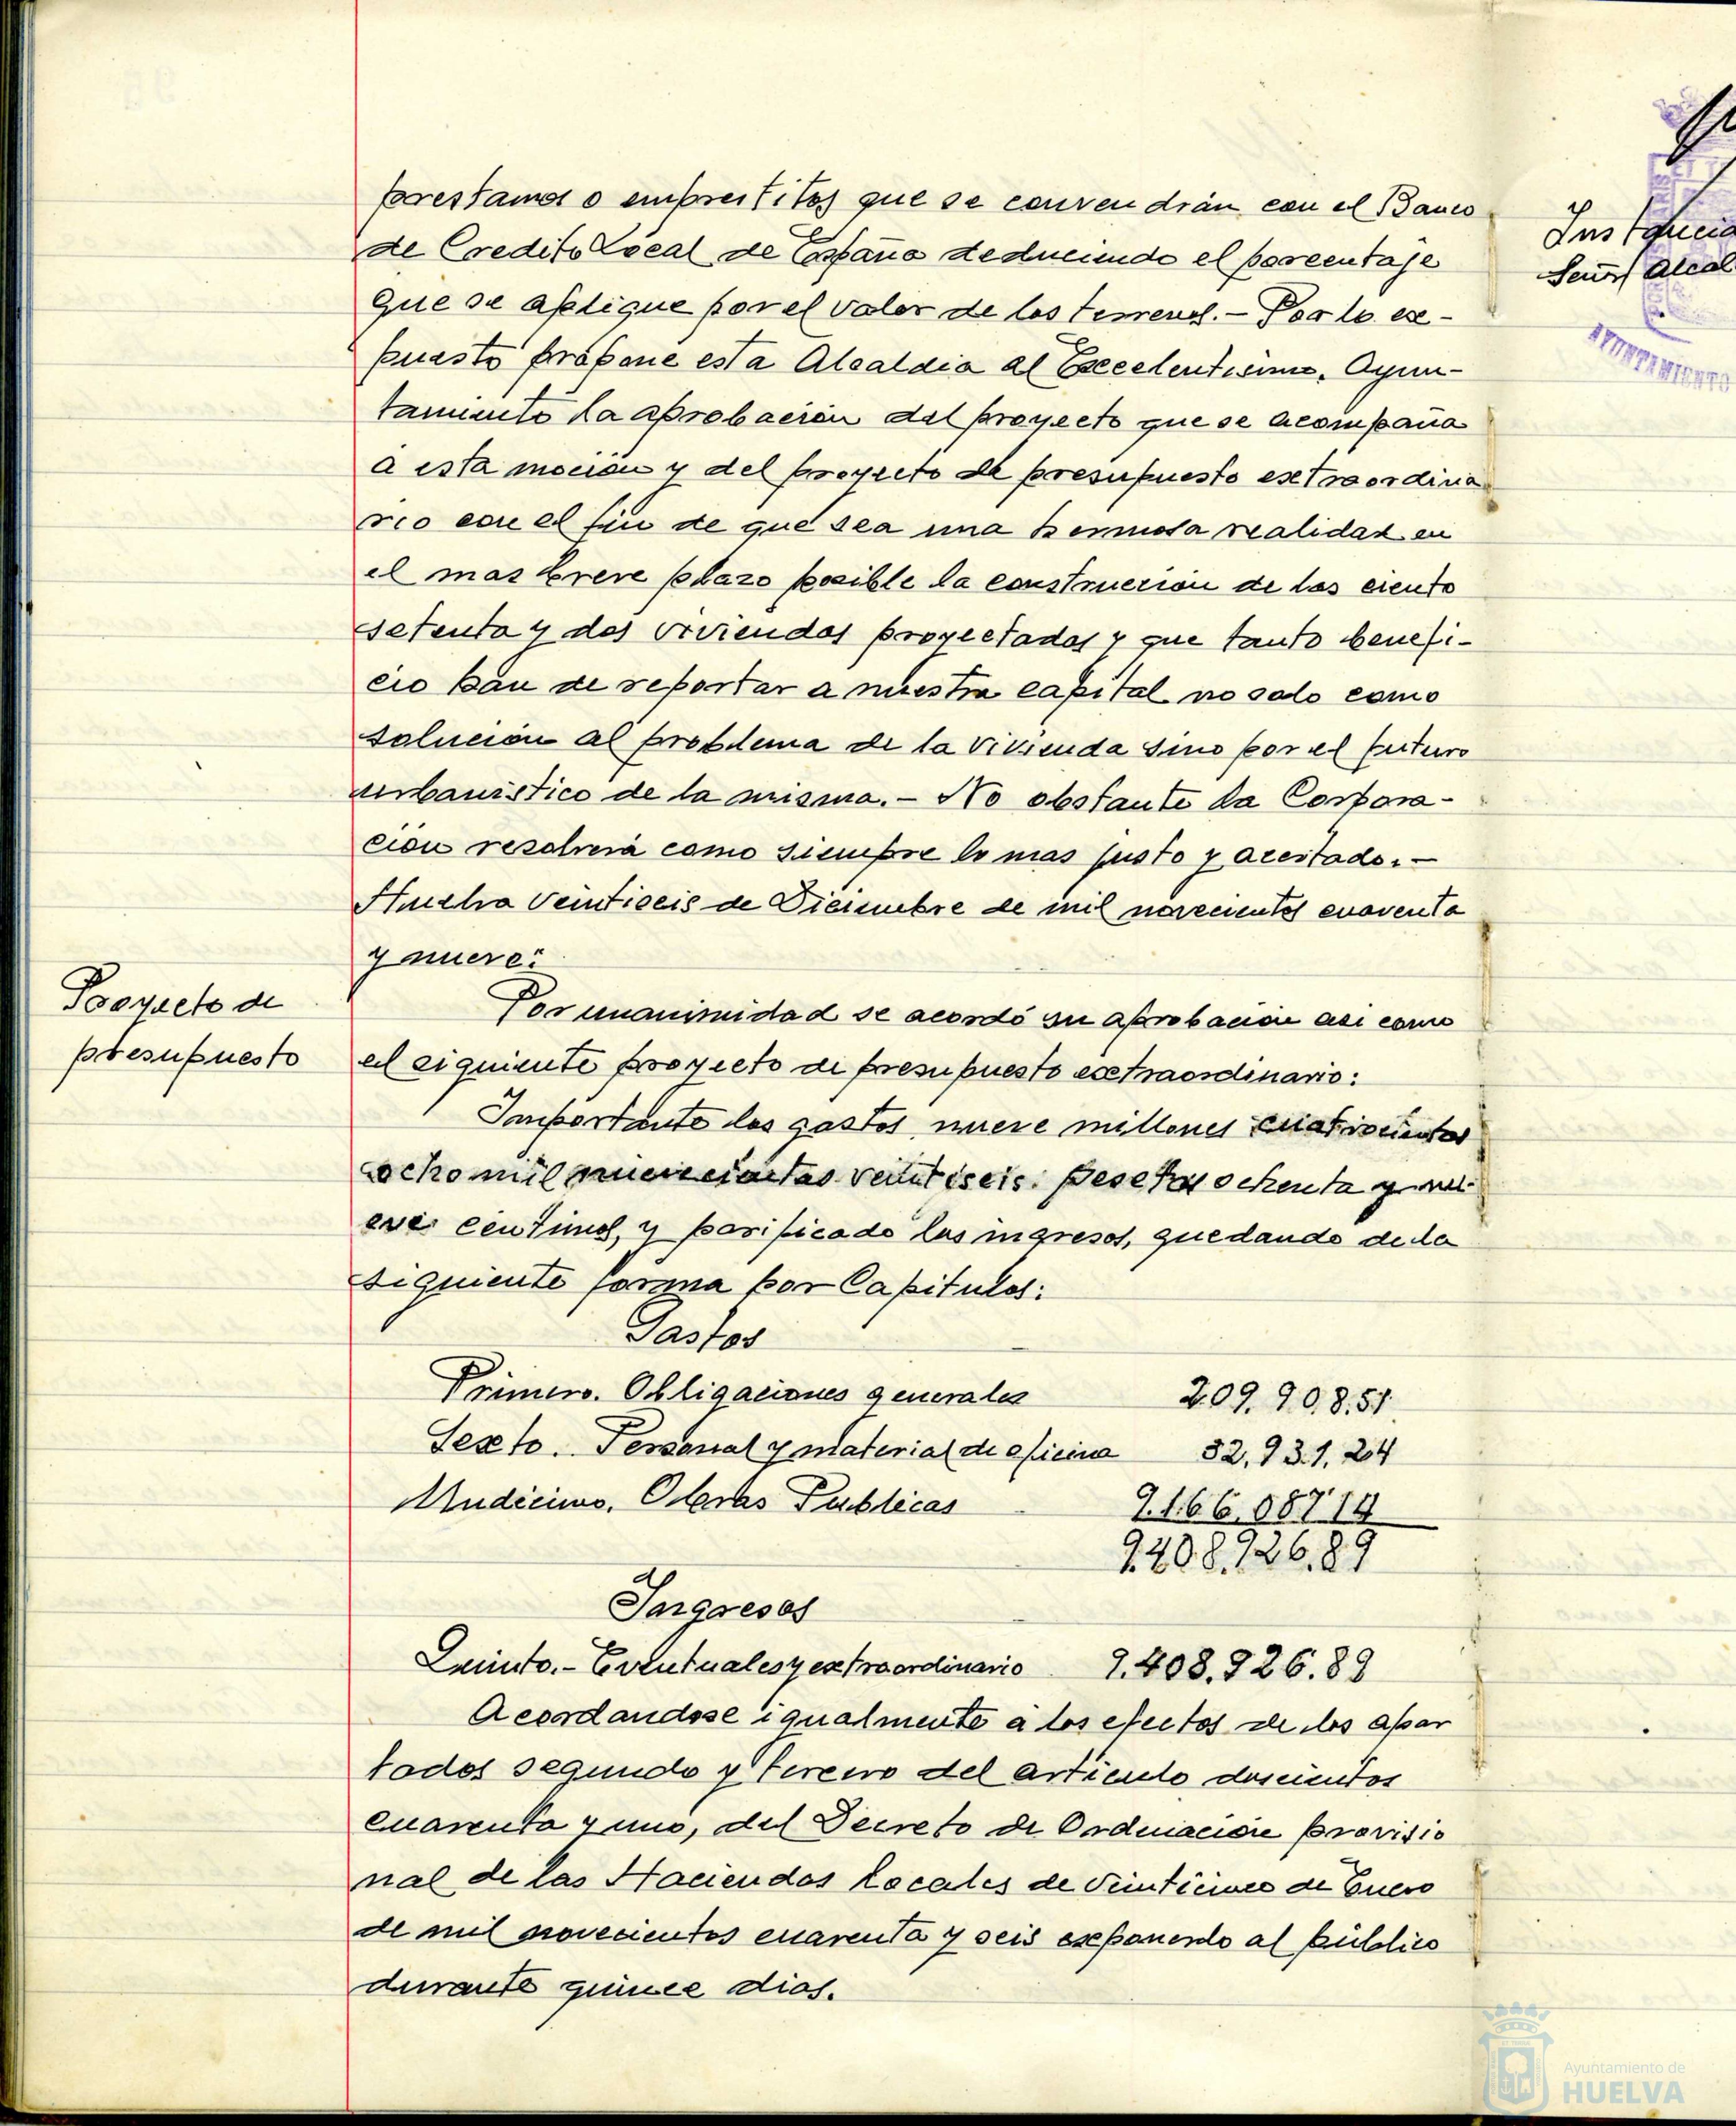 prestamos o emprestitos que se convendrán con el Banco
de Credito Local de España deduciendo el porcentaje
que se aplique por el valor de los terrenos.- Por lo ex-
puesto propone esta Alcaldia al Excelentisimo. Ayun-
tamiento la aprobación del proyecto que se acompaña
a esta moción y del proyecto de presupuesto extraordina
rio con el fin de que sea una hermosa realidad en
el mas breve plazo posible la construccion de las ciento
setenta y dos viviendas proyectadas y que tanto benefi-
cio han de reportar a nuestra capital no solo como
solución al problema de la vivienda sino por el futuro
urbanistico de la misma.- No obstante la Corpora-
cion resolverá como siempre lo mas justo y acertado.-
Huelva veintiseis de Diciembre de mil novecientos cuarenta
y nueve:
Proyecto de
presupuesto
Por unanimidad se acordó su aprobación asi como
el siguiente proyecto de presupuesto extraordinario:
Importante los gastos, nueve millones cuatrocientas
ocho mil novecientas veintiseis. pesetas ochenta y nu
eve centimos, y parificado los ingresos, quedando de la
siguiente forma por Capitulos:
Gastos
Primero. Obligaciones generales 209.908.51
Sexto. Personal y material de oficina 32.931.24
Undécimo. Obras Publicas 9.166.087 14
9.408.926.89
Ingresos
Quinto.- Eventuales y extraordinario 9.408.926.89
Acordandose igualmente a los efectos de los apar
tados segundo y tercero del articulo doscientos
cuarenta y uno, del Decreto de Ordenación provisio
nal de las Haciendas Locales de veinticinco de Enero
de mil novecientos cuarenta y seis exponerlo al público
durante quince dias.
Señor Alcal
AYUNTAMIENTO
Ayuntamiento de
HUELVA